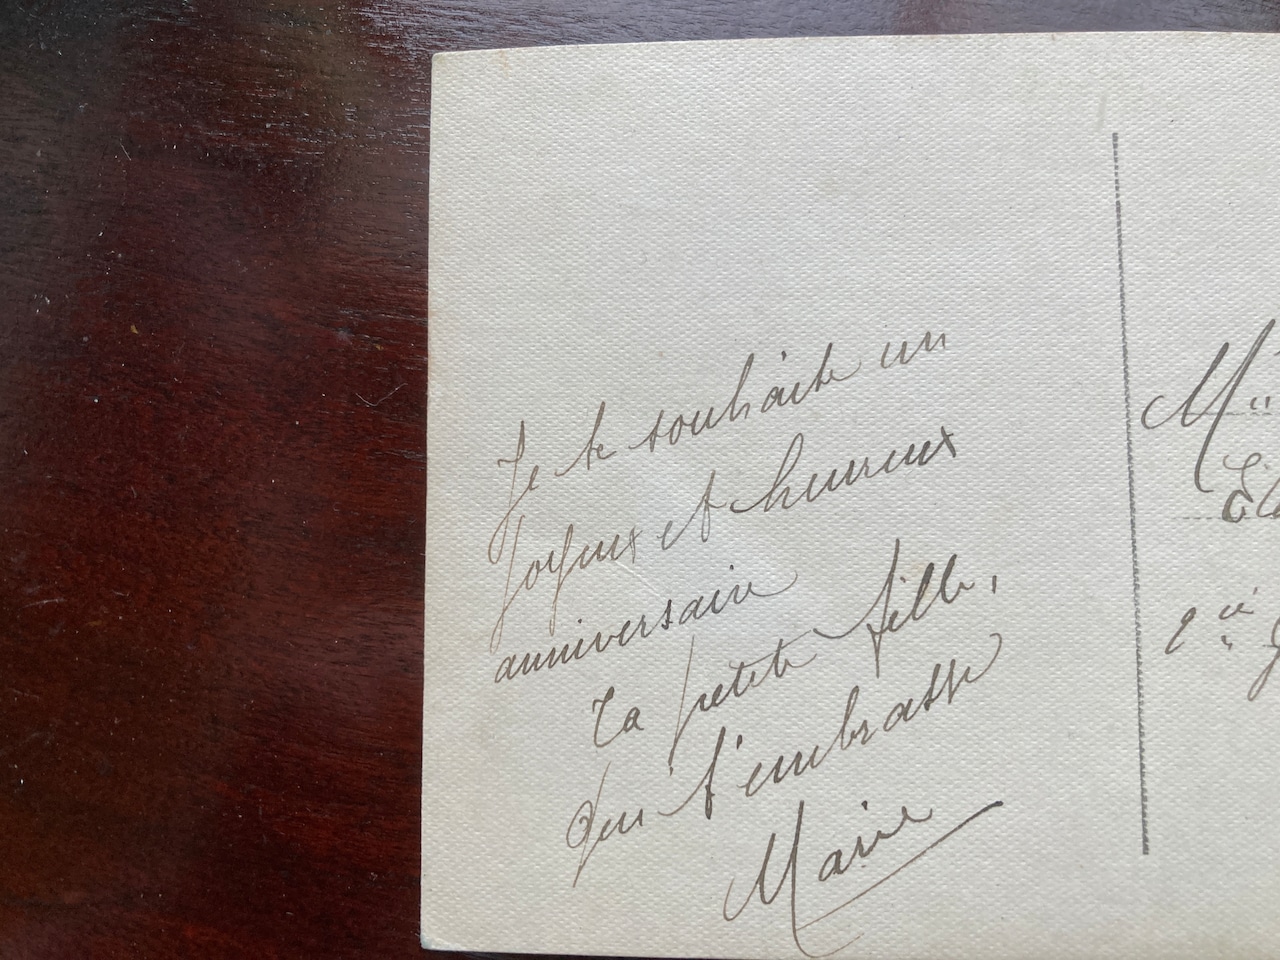 Je te souhaite un
joyeux et heureux
anniversaire
Ta petite fille,
Qui t'embrasse
Marie